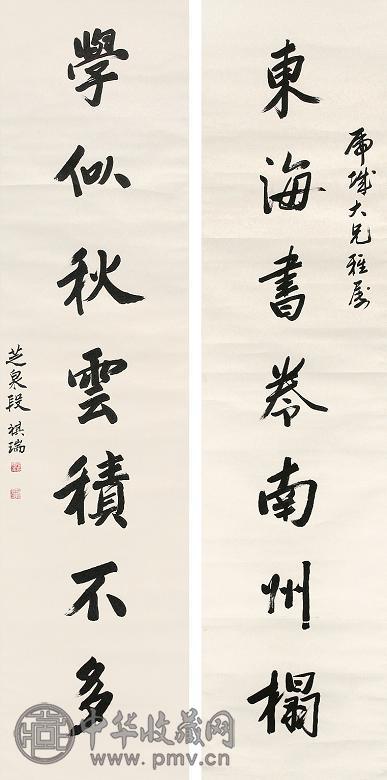 虎城大兄雅屬
東海書卷南州榻
學似秋雲積不多
芝泉段祺瑞
中华收藏网
www.pmv.cn